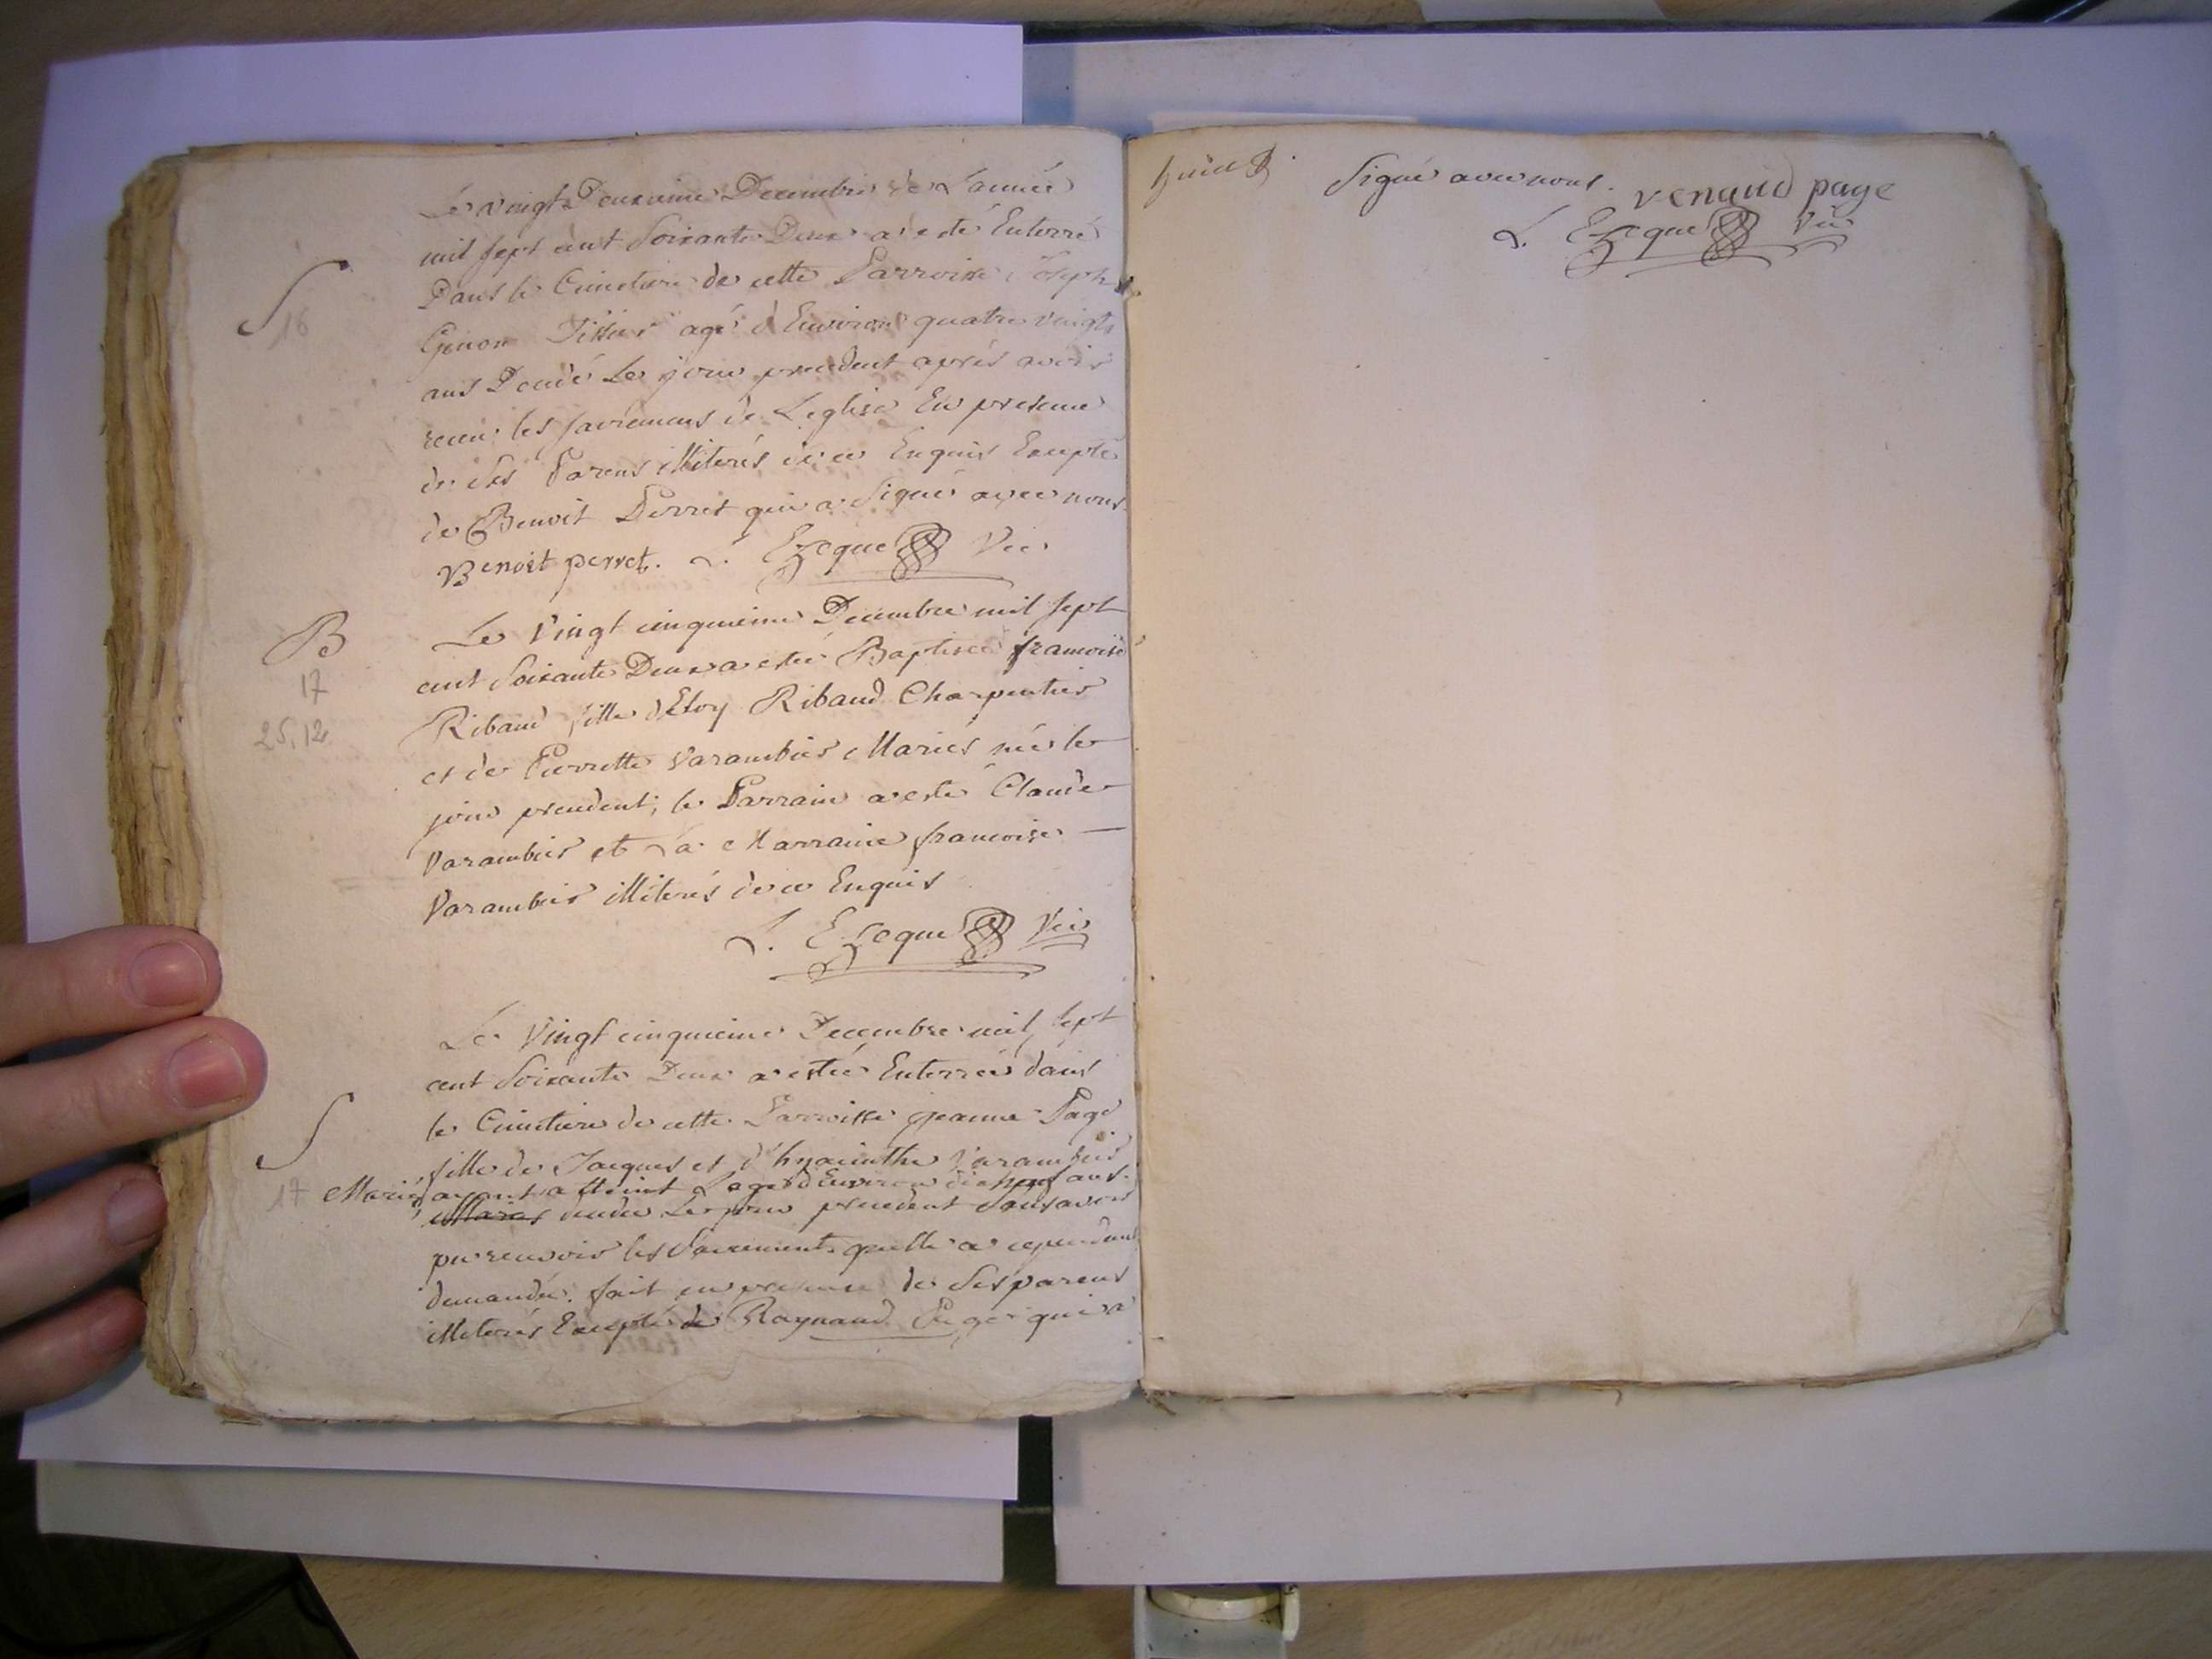 Le vingt Deuxieme Decembre de L'année
mil sept cent Soixante Deux a esté Enterré
Dans le Cimetiere de cette Parroisse Joseph
S
16
Ginon Tissier agé d'Environ quatre vingts
ans Decedé Le jour precedent aprés avoir
receu les sacremens de L'eglise En presence
de ses Parens illiterés de ce Enquis Excepté
de Benoit Perret qui a signé avec nous
Benoit perret. L. Ezeque Vic
B
17
25.12
Le Vingt cinquieme Decembre mil sept
cent Soixante Deux a estée Baptisée francoise
Ribaud fille d'Eloy Ribaud Charpentier
et de Pierrette Varambier Mariés née le
jour precedent; le Parrain a esté Claude
Varambier et La Marraine francoise
Varambier illiterés de ce Enquis
L. Ezeque Vic
Le Vingt cinquieme Decembre mil sept
cent Soixante Deux a estée Enterrée dans
le Cimetiere de cette Parroisse jeanne Page
S
17
fille de Jacques et d'hyacinthe Varambier
Mariés, ayant atteint L'age d'Environ ans
Mariés decedée Le jour precedent sans avoir
pu recevoir les Sacrements qu'elle a cependant
demandés. fait en presence de ses parens
illiterés Excepté de Raynaud Page qui a
signé avec nous. renaud page
L. Ezeque Vic